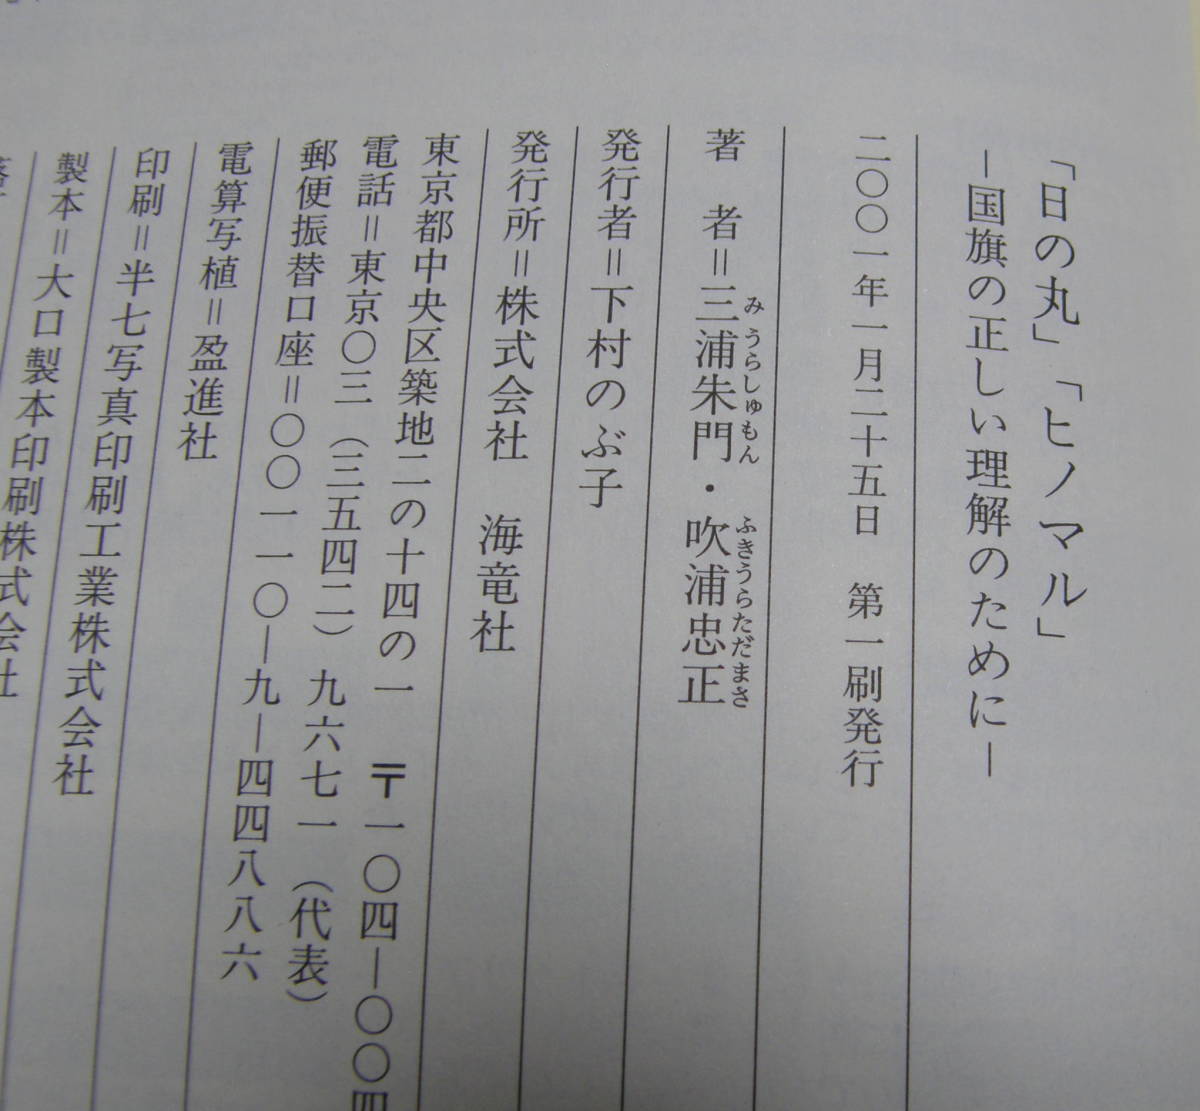 「日の丸」「ヒノマル」
—国旗の正しい理解のために—
二〇〇一年一月二十五日　第一刷発行
著　者＝三浦朱門・吹浦忠正
みうらしゅもん　ふきうらただまさ
発行者＝下村のぶ子
発行所＝株式会社　海竜社
東京都中央区築地二の十四の一　〒一〇四—〇〇四
電話＝東京〇三（三五四二）九六七一（代表）
郵便振替口座＝〇〇一一〇—九—四四八八六
電算写植＝盈進社
印刷＝半七写真印刷工業株式会社
製本＝大口製本印刷株式会社